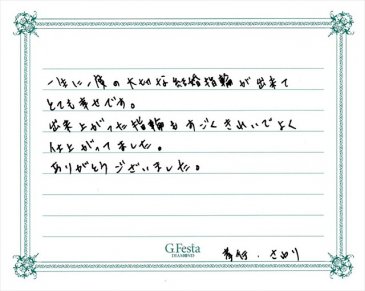 一生に一度の大切な結婚指輪が出来て
とても幸せです。
出来上がった指輪もすごくきれいでよく
仕上がってました。
ありがとうございました。
G.Festa
DIAMOND
さゆり